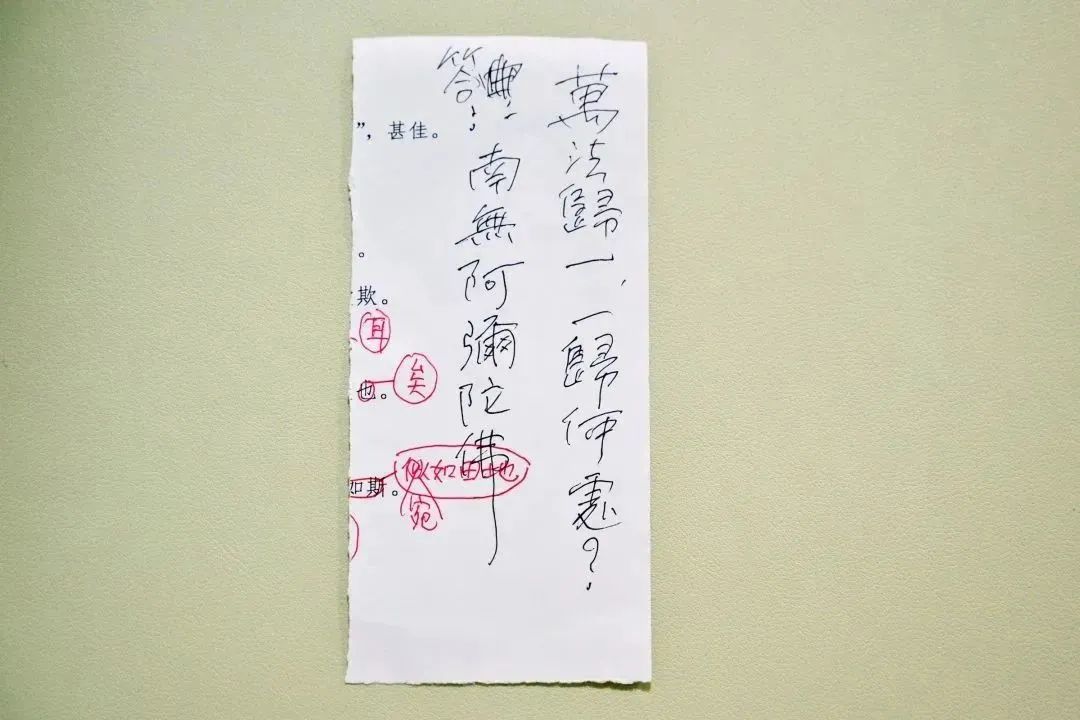 萬法歸一，一歸何處？
答：南無阿彌陀佛
”，甚佳。
。
欺。
耳
也。矣
如斯。似如由也
宛